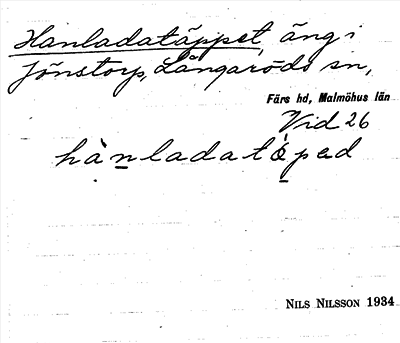 Hanladatäppet, äng i
Jönstorp, Långaröds sn,
Färs hd, Malmöhus län
Vid 26
hànladatǿped
NILS NILSSON 1934